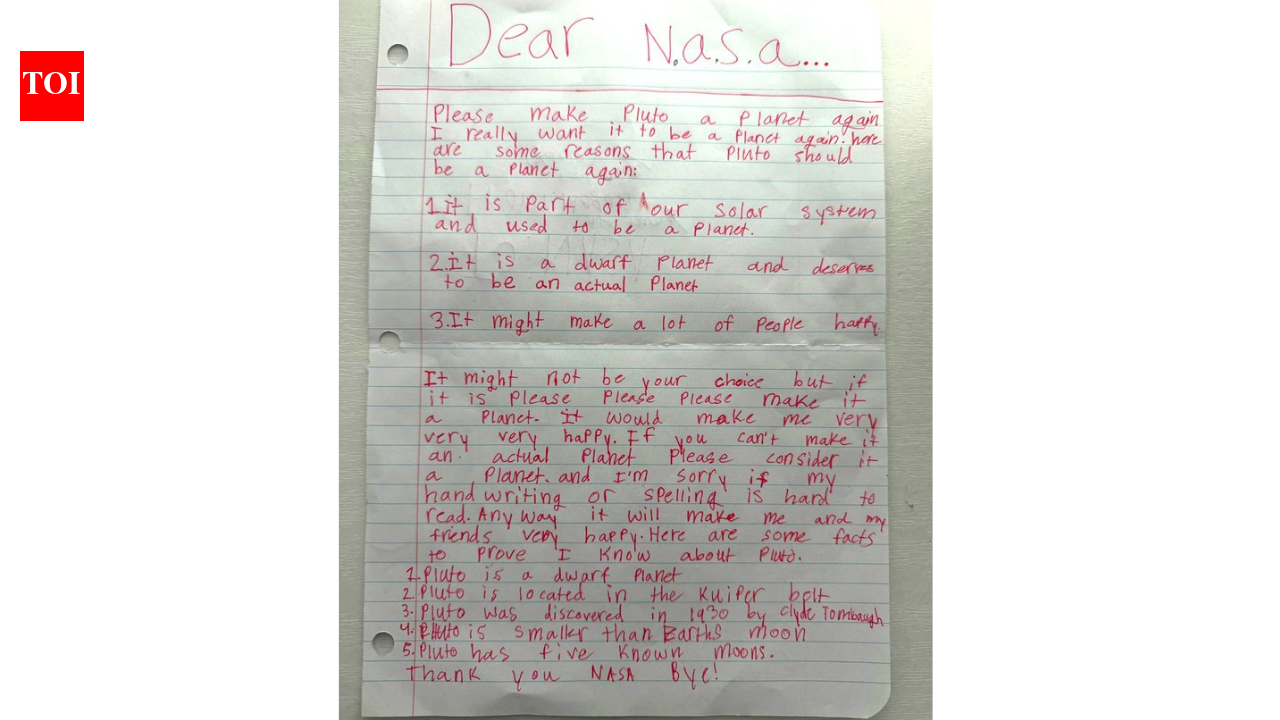 TOI
Dear N.a.s.a...
Please make Pluto a planet again
I really want it to be a planet again. here
are some reasons that Pluto should
be a planet again:
1.it is part of our solar system
and used to be a planet.
2.It is a dwarf planet and deserves
to be an actual planet
3.It might make a lot of people happy.
It might not be your choice but if
it is please please please make it
a planet. it would make me very
very very happy. If you can't make it
an actual planet please consider it
a planet. and I'm sorry if my
hand writing or spelling is hard to
read. Any way it will make me and my
friends very happy. Here are some facts
to prove I know about Pluto.
1.Pluto is a dwarf planet
2 Pluto is located in the kuiper belt
3. Pluto was discovered in 1930 by Clyde Tombaugh
4. Pluto is smaller than Earths moon
5. Pluto has five known moons.
Thank you NASA Bye!